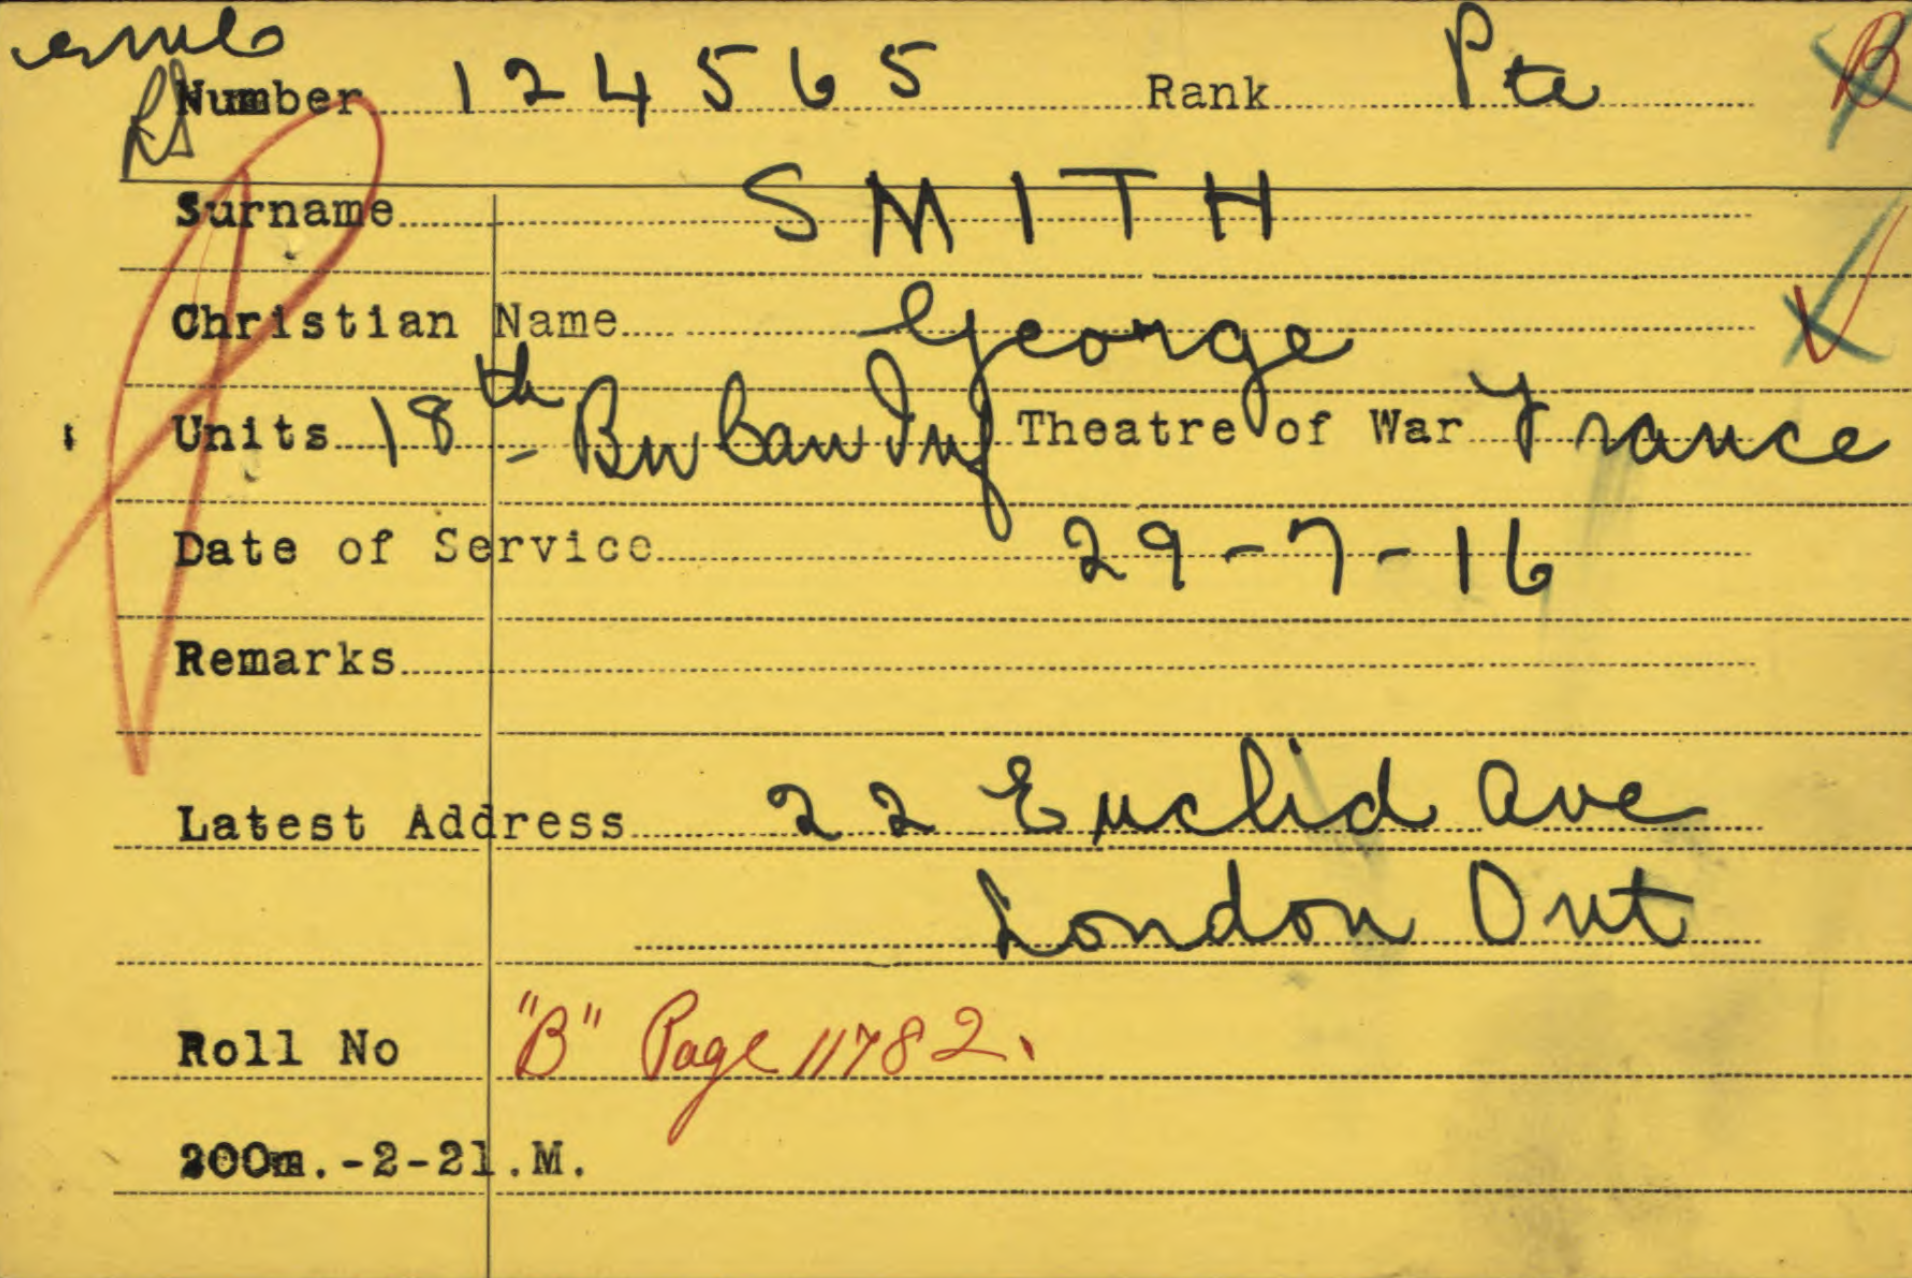 Number 124565 Rank Pte B
Surname SMITH
Christian Name George
Units 18th Bn Can Inf Theatre of War France
Date of Service 29-7-16
Remarks
Latest Address 22 Euclid Ave
London Ont
Roll No "B" Page 11782.
200m.-2-21.M.